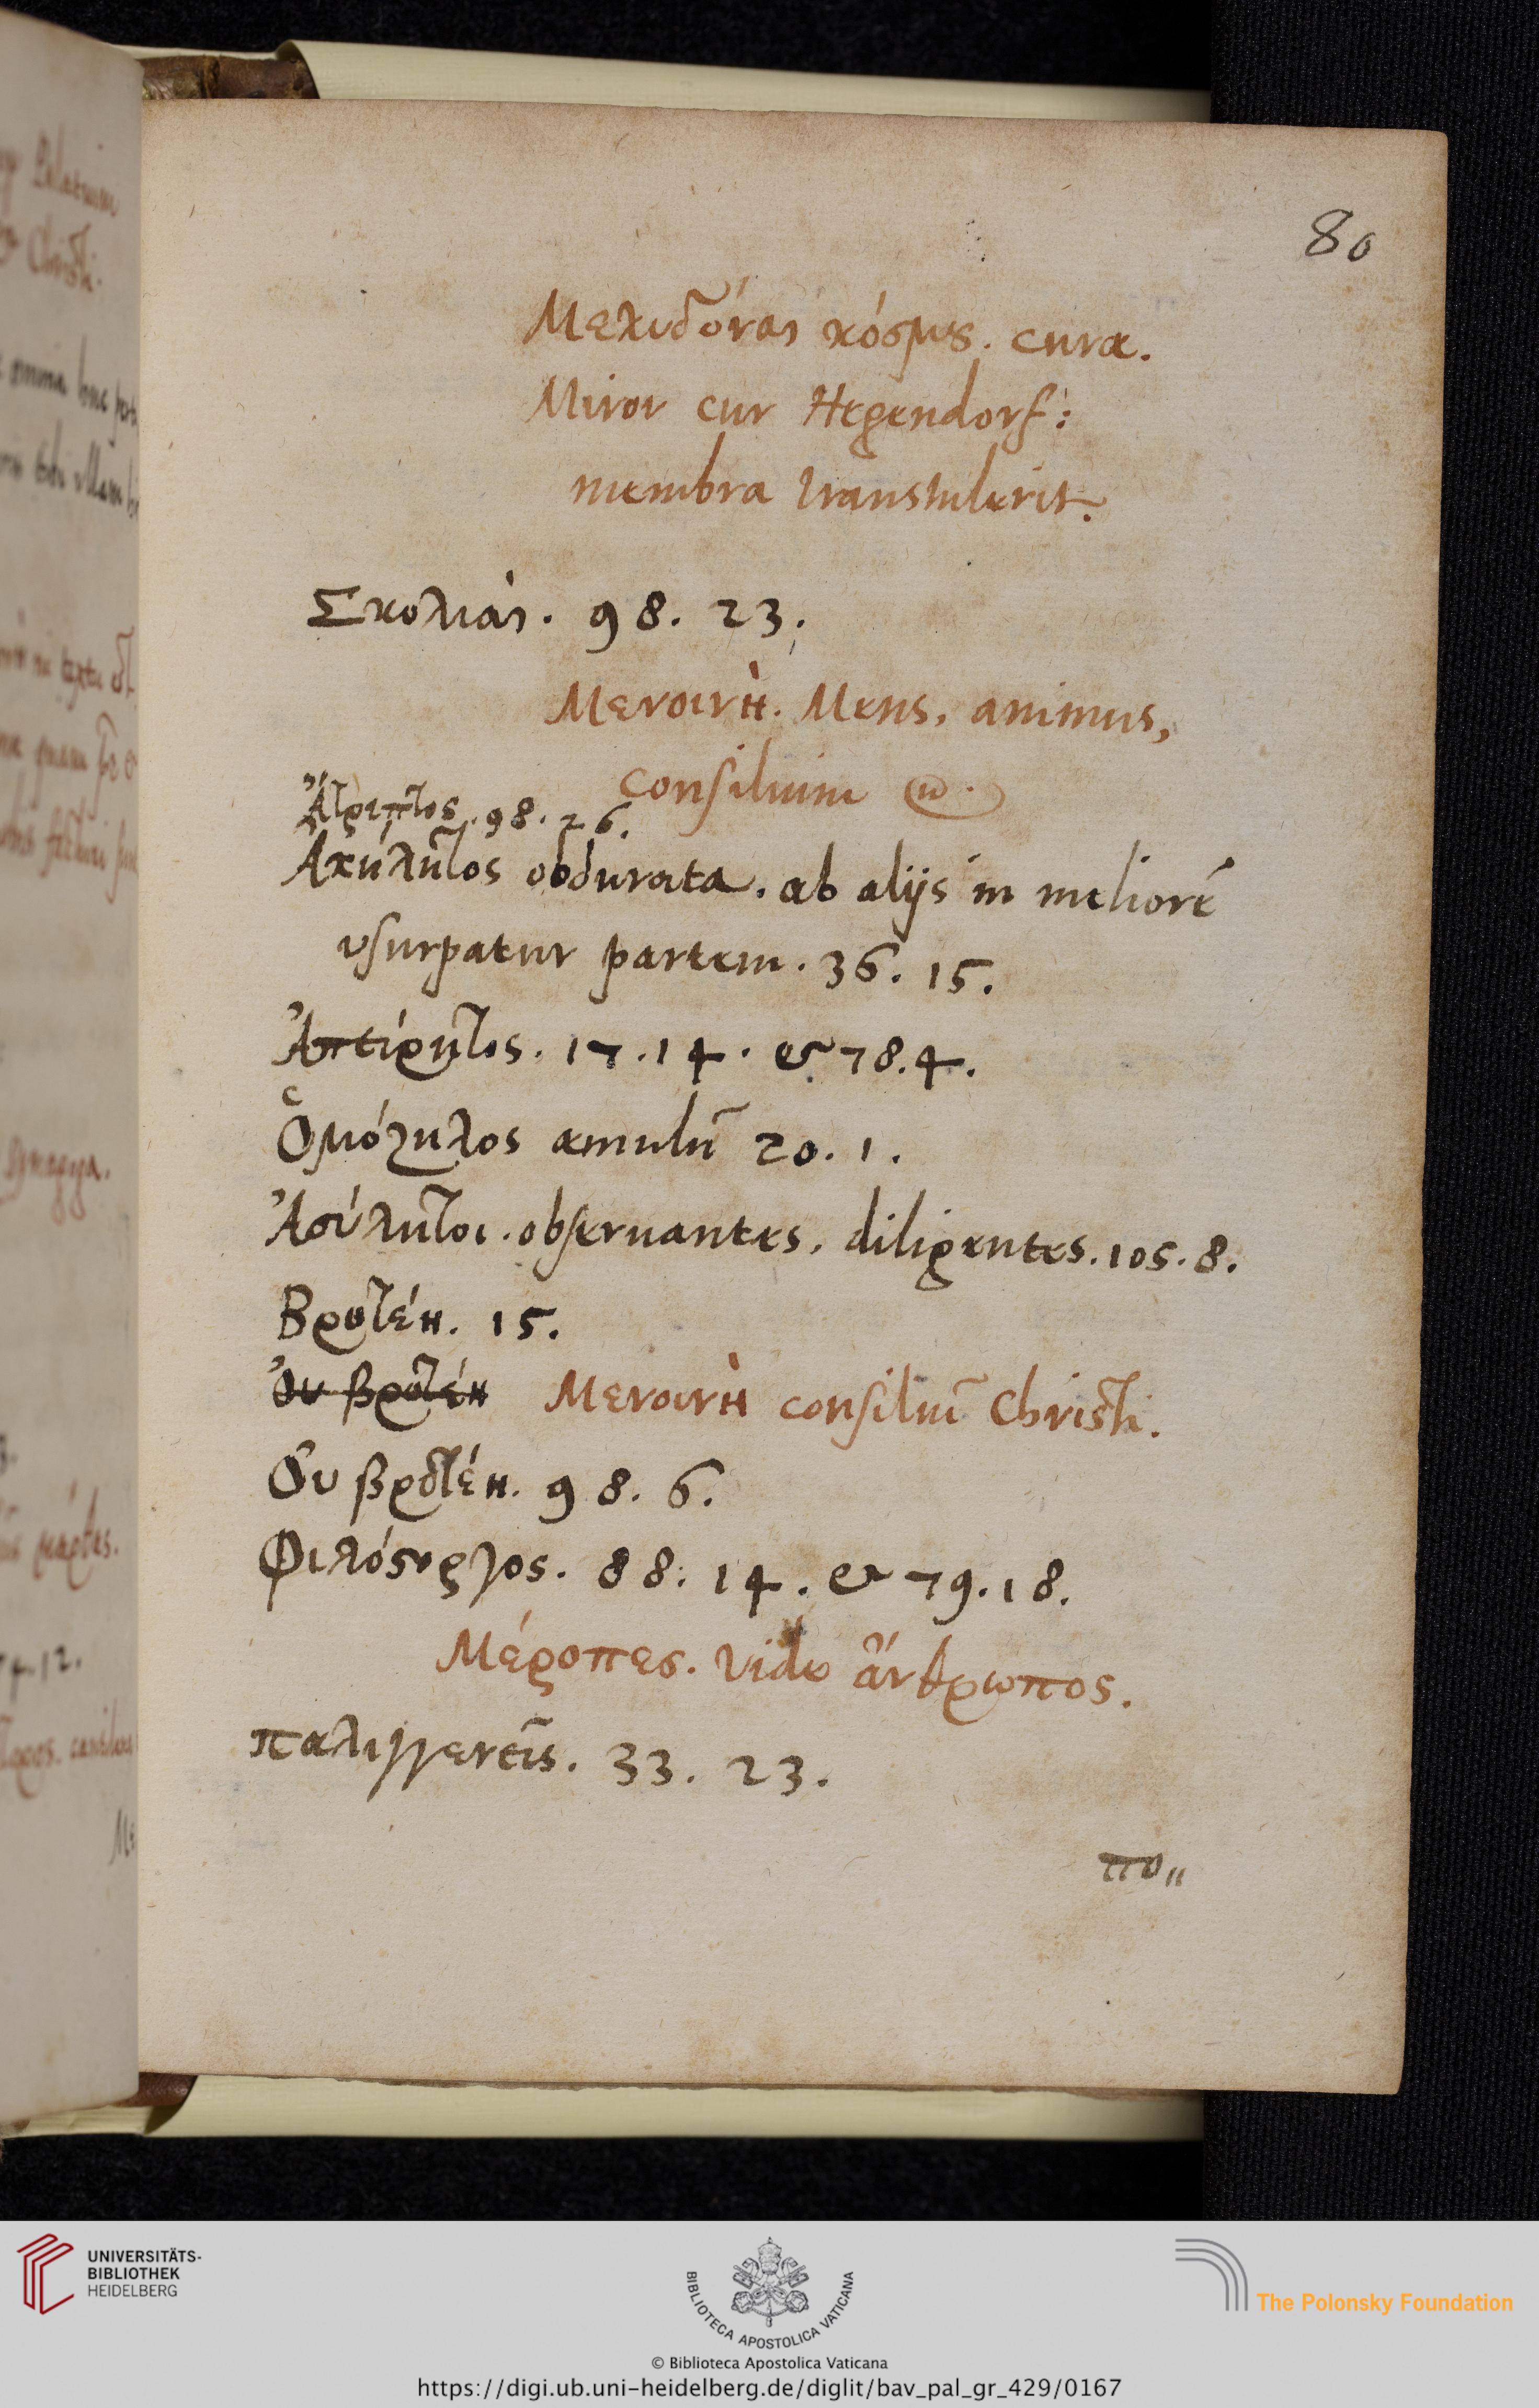 80
Μελεδῶναι κόσμȣ. cura.
Miror cur Hegendorf:
membra transtulerit.
Σκολιαὶ. 98. 23.
Μενοινὴ. Mens, animus,
consilium
Ἄτριπτος. 98. 26.
Ἀκήλητος obdurata. ab alijs in meliorē
vsurpatur partem. 36. 15.
Ἀπείρητος. 17. 14. & 78. 4.
Ὁμόζηλος æmulū 20. 1.
Ἀσύλητοι. obseruantes, diligentes. 105. 8.
Βροτέη. 15.
Ὀυ βροτέη Μενοινὴ consiliū Christi.
Ὀυ βροτέη. 98. 6.
Φιλόστοργος. 88. 14. & 79. 18.
Μέροπες. vide ἄνθρωπος.
παλιγγενεῖς. 33. 23.
πο
UNIVERSITÄTS-
BIBLIOTHEK
HEIDELBERG
BIBLIOTECA APOSTOLICA VATICANA
© Biblioteca Apostolica Vaticana
The Polonsky Foundation
https://digi.ub.uni-heidelberg.de/diglit/bav_pal_gr_429/0167